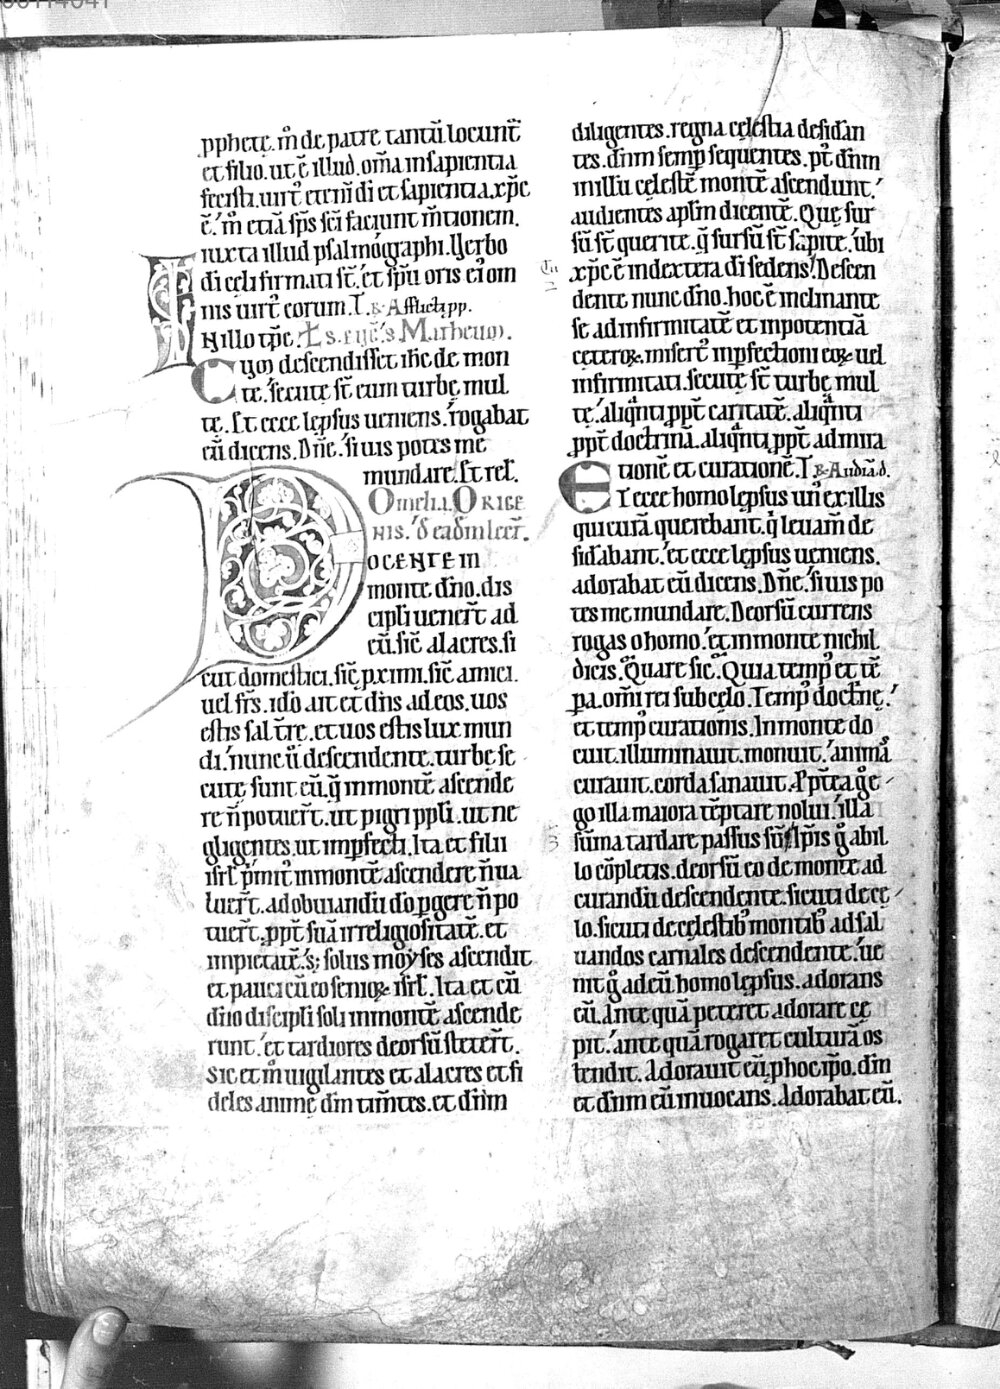 pphete. m̊ de patre tantū locunt᷑
et filio. ut ē illud. om̄a insapientia
fecisti. uirt᷑ etenī di et sapientia. xp̄c
ē. m̊ etiā sp̄s sc̄i faciunt m̄tionem.
iuxta illud psalmographi. Uerbo
di cęli firmati st̄. et sp̄u oris ei᷒ om
nis uirt᷑ eorum. T. R Afflicti pp.
INillo tp̄e. Matheum.
Cum descendisset ih̄c de mon
te. secutę st̄ eum turbę mul
tę. Et ecce lepsus ueniens. rogabat
eū dicens. Dn̄e. si uis potes me
mundare. Et rel̄.
Omelia ORIGE
NIS. de eadm̄ lect̄.
DOCENTEM
monte dn̄o. dis
cipli uener̄t ad
eū. sic̄ alacres. si
cut domestici. sic̄ pximi. sic̄ amici.
uel fr̄s. ido ait et dn̄s ad eos. uos
estis sal tr̄ę. et uos estis lux mun
di. nunc ů descendente. turbę se
cutę sunt eū. q̄ inmontē ascende
re n̄ potuer̄t. ut pigri ppl̄i. ut ne
gligentes. ut impfecti. Ita et filii
isrl̄ pmit᷑ inmontē ascendere n̄ ua
luer̄t. ad obuiandū do pgere n̄ po
tuer̄t. ppt̄ suā irreligiositatē. et
impietatē. s; solus moyses ascendit
et pauci cū eo senioꝝ isrl̄. Ita et cū
dn̄o discipli soli inmontē ascende
runt. et tardiores deorsū steter̄t.
Sic et m̊ uigilantes et alacres et fi
deles animę dm̄ tim̄tes. et dn̄m
diligentes. regna cęlestia desidan
tes. dn̄m semp sequentes. pt̄ dn̄m
millū celestē montē ascendunt.
audientes aplm̄ dicentē. Quę sur
sū st̄ querite. q̄ sursū st̄ sapite. ubi
xp̄c ē indextera di sedens. Descen
dente nunc dn̄o. hoc ē inclinante
se ad infirmitatē et inpotentiā
ceteroꝝ. misert᷑ inpfectioni eoꝝ uel
infirmitati. secutę st̄ turbę mul
tę. aliqnti ppt̄ caritatē. aliqnti
ppt̄ doctrinā. aliqnti ppt̄ admira
tionē et curationē. T R Audiā d.
ET ecce homo lepsus un᷒ ex illis
qui curā querebant. q̄ leuam̄ de
sidabant. et ecce lepsus ueniens.
adorabat eū dicens. Dn̄e. si uis po
tes me mundare. Deorsū currens
rogas o homo. et inmonte nichil
dicis. Quare sic. Quia temp᷒ et tē
pa. om̄i rei sub celo. Temp᷒ doct̄nę.
et temp᷒ curationis. Inmonte do
cuit. illuminauit. monuit. animā
curauit. corda sanauit.
go illa maiora tēptare nolui. illa
sūma tardare passus sū. Ip̄is g̊ abil
lo cōpletis. deorsū eo de monte ad
curandū descendente. sicuti de cę
lo. sicuti de cęlestib᷒ montib᷒ ad sal
uandos carnales descendente. ue
nit g̊ ad eū homo lepsus. adorans
eū. Ante quā peteret adorare cę
pit. ante quā rogaret culturā os
tendit. Adorauit eū. phoc ipo. dm̄
et dn̄m eū inuocans. Adorabat eū.